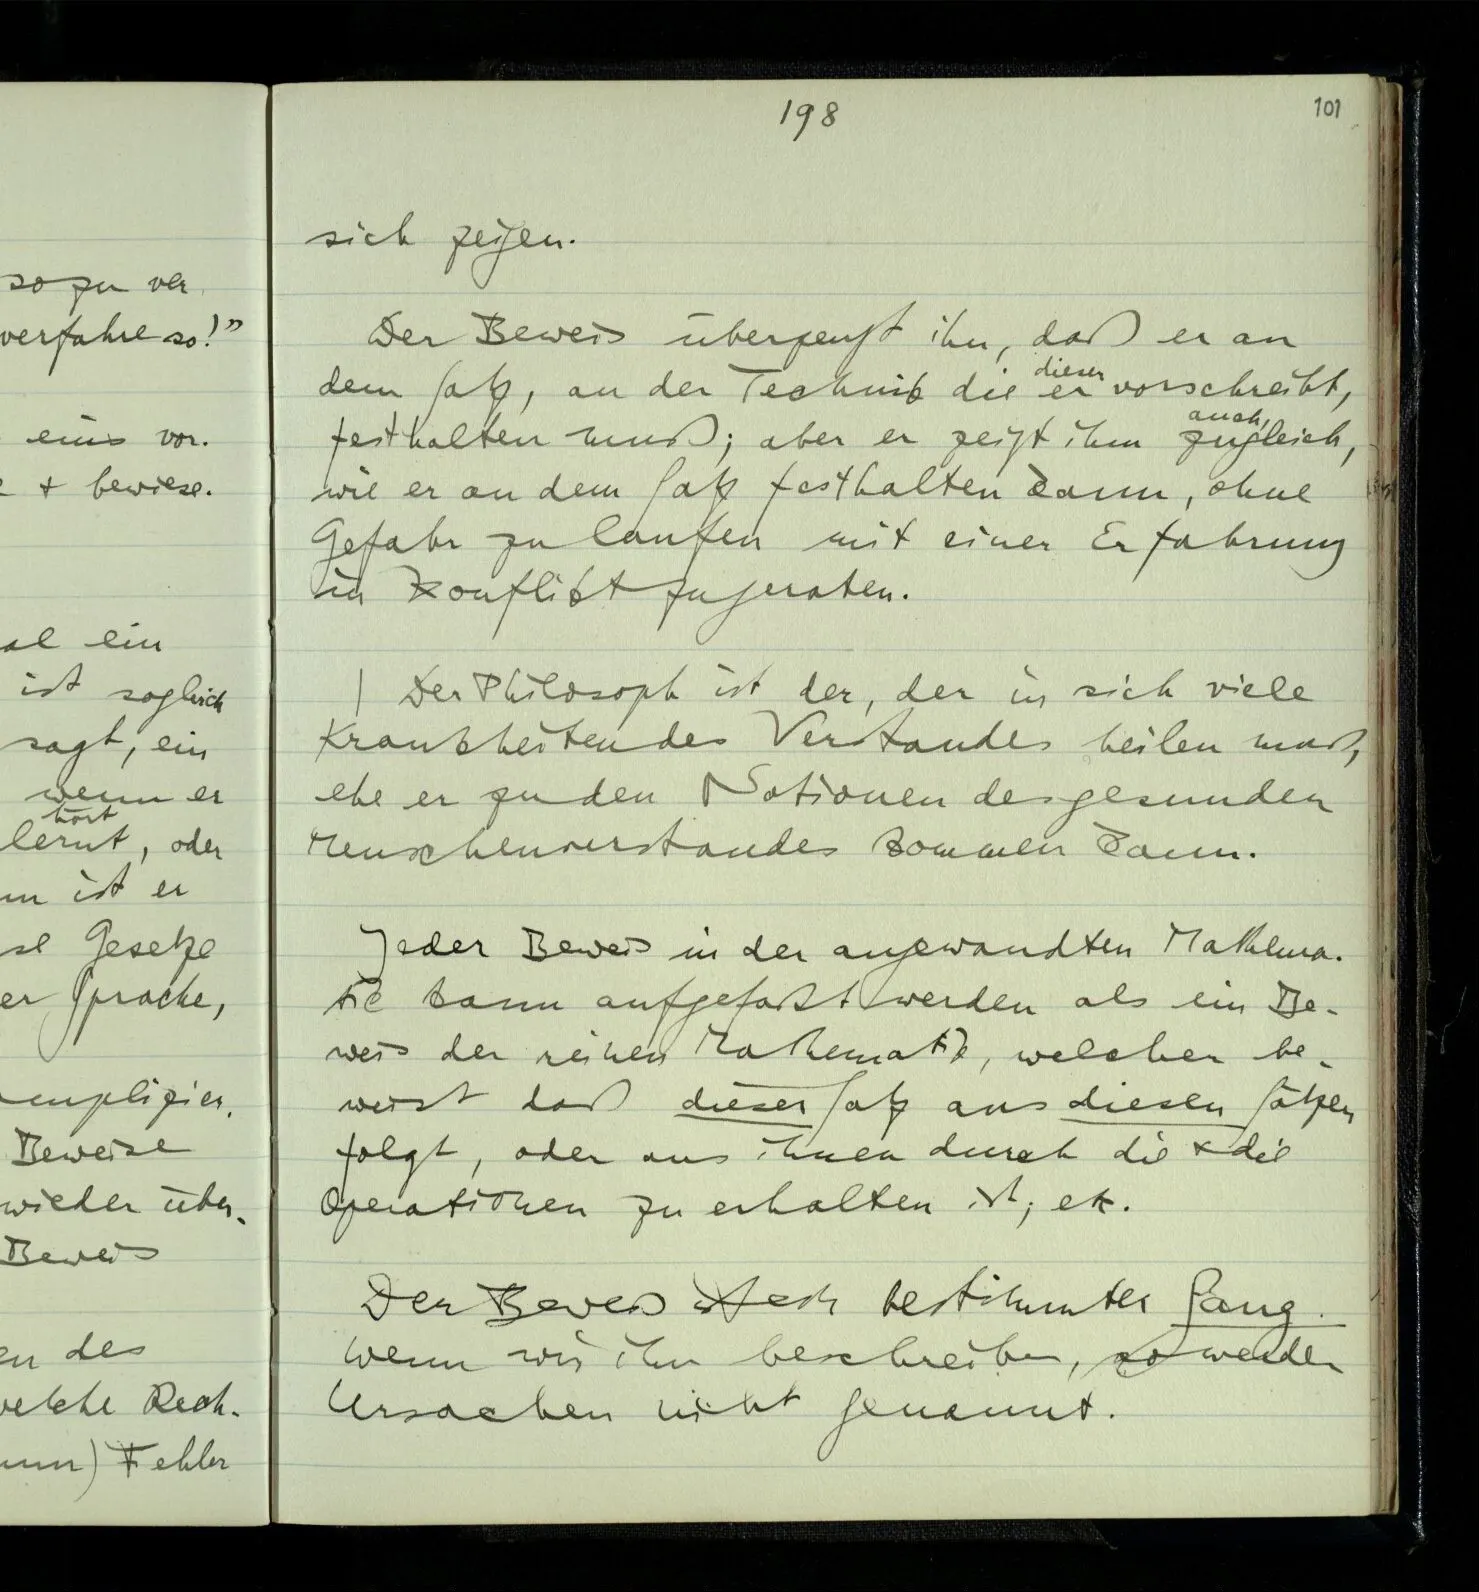 so zu ver
verfahre so!"
eins vor.
+ bewiese.
ein
ist sogleich
sagt, ein
wenn er
hört
lernt, oder
ist er
Gesetze
er Sprache,
Beweise
wieder über-
Beweis
en des
welche Rech-
Fehler
198
101
sich zeigen.
Der Beweis überzeugt ihn, daß er an
dieser
dem Satz, an der Technik die er vorschreibt,
auch,
festhalten muß; aber er zeigt ihm zugleich,
wie er an dem Satz festhalten kann, ohne
Gefahr zu laufen mit einer Erfahrung
in Konflikt zu geraten.
| Der Philosoph ist der, der in sich viele
Krankheiten des Verstandes heilen muß,
ehe er zu den Notionen des gesunden
Menschenverstandes kommen kann.
Jeder Beweis in der angewandten Mathema-
tik kann aufgefaßt werden als ein Be-
weis der reinen Mathematik, welcher be-
weist daß dieser Satz aus diesen Sätzen
folgt, oder aus ihnen durch die + die
Operationen zu erhalten ist; etc.
Der Beweis ist ein bestimmter Gang.
Wenn wir ihn beschreiben, so werden
Ursachen nicht genannt.